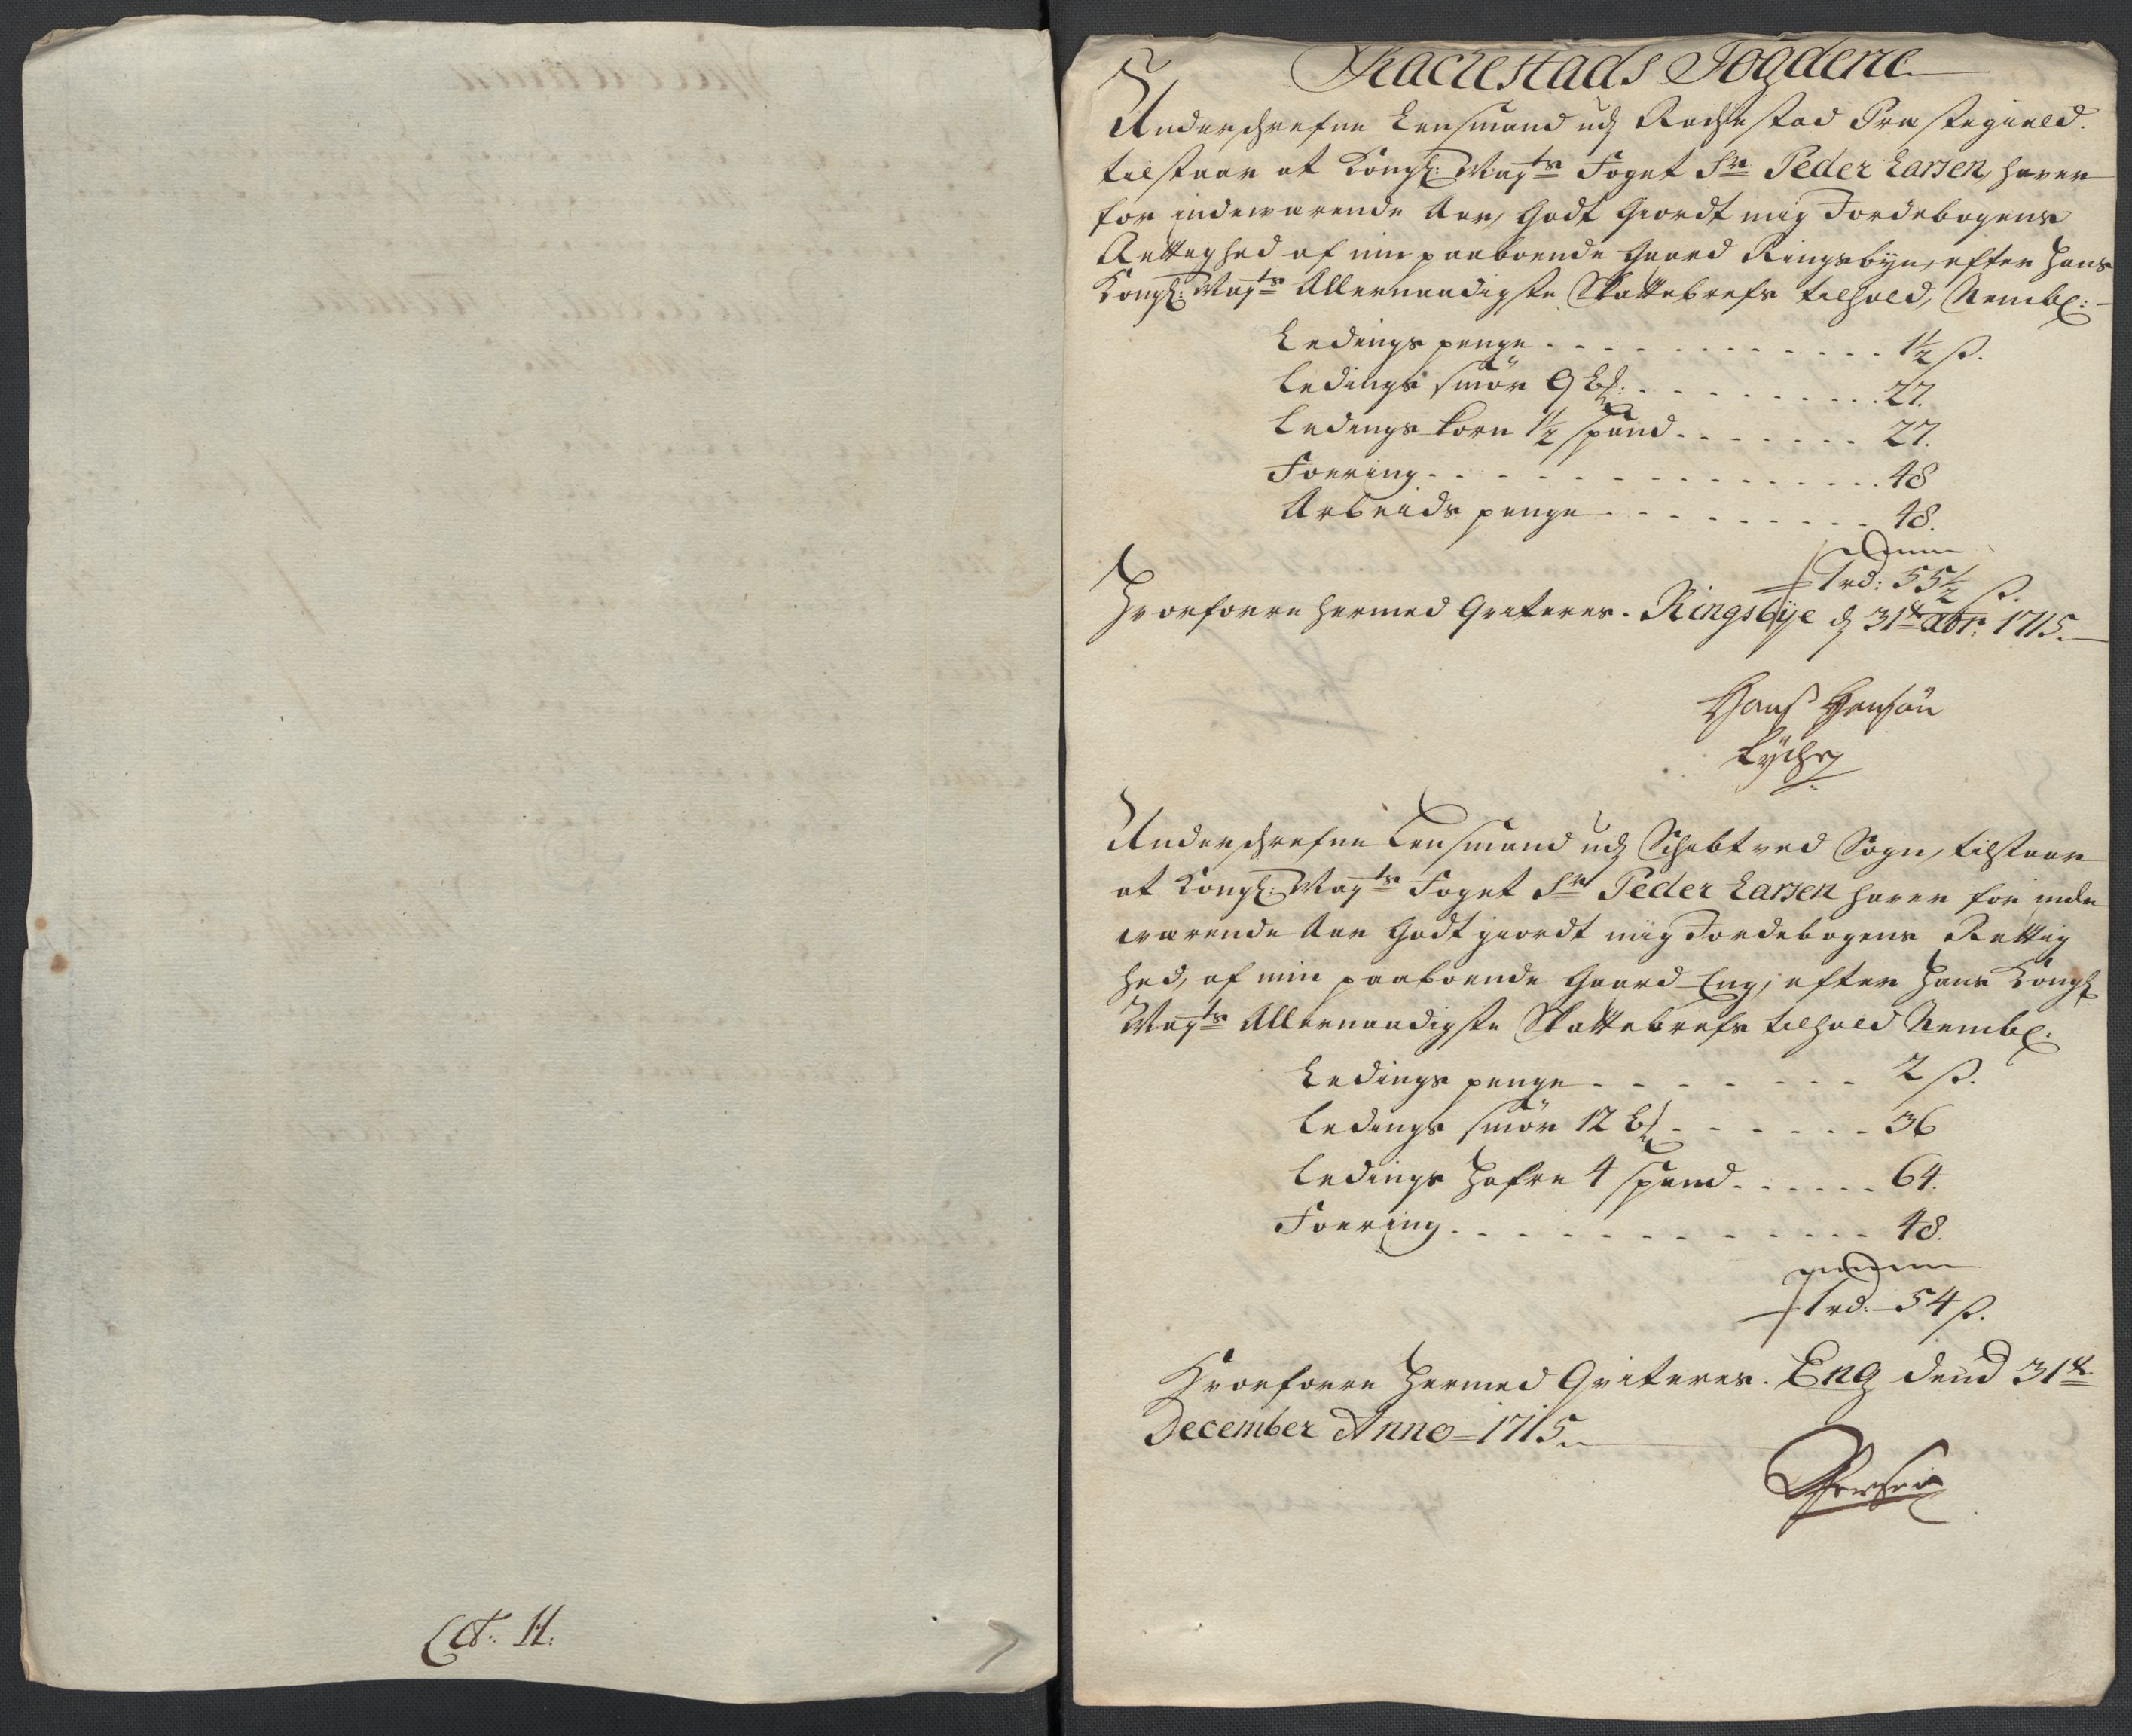 Lit: H:
Rackestads Fogderie
Underschrefne Lensmand udj Rachestad Præstegield.
tilstaar at Kongl: Mayts Foget Sr Peder Larsen, haver
for indewærende Aar, Godt Giordt mig Jordebogens
Rettighed af min paaboende Gaard Ringsbye, efter Hans
Kongl: Mayts Allernaadigste Skattebrefs tilhold, Nembl:
Ledings penge . . . . . . . . . . . . 1½ s.
Ledings smör 9 . . . . . . . . . . 27.
Ledings Korn 1½ spand . . . . . . . 27.
Foering . . . . . . . . . . . . . . . . 48
Arbeids penge . . . . . . . . . . 48.
Summa
1 rd: 55½ s.
Hvorforre hermed Qviteres. Ringsbye dj 31te Xbr: 1715.
Hans Hansön
Underschrefne Lensmand udj Schibtved Sogn, tilstaar
at Kongl: Mayts Foget Sr Peder Larsen haver for inde
wærende Aar Godt giordt mig Jordebogens Rettig
hed, af min paaboende Gaard Eng, efter Hans Kongl
Mayts Allernaadigste Skattebrefs tilhold Nembl:
Ledings penge . . . . . . . . 2 s.
Ledings smör 12 . . . . . . 36
Ledings Hafre 4 spand . . . . . . 64.
Foering . . . . . . . . . . . . . 48.
Summa
1 rd: 54 s.
Hvorforre Hermed Qviteres. Eng dend 31te
December Anno 1715.